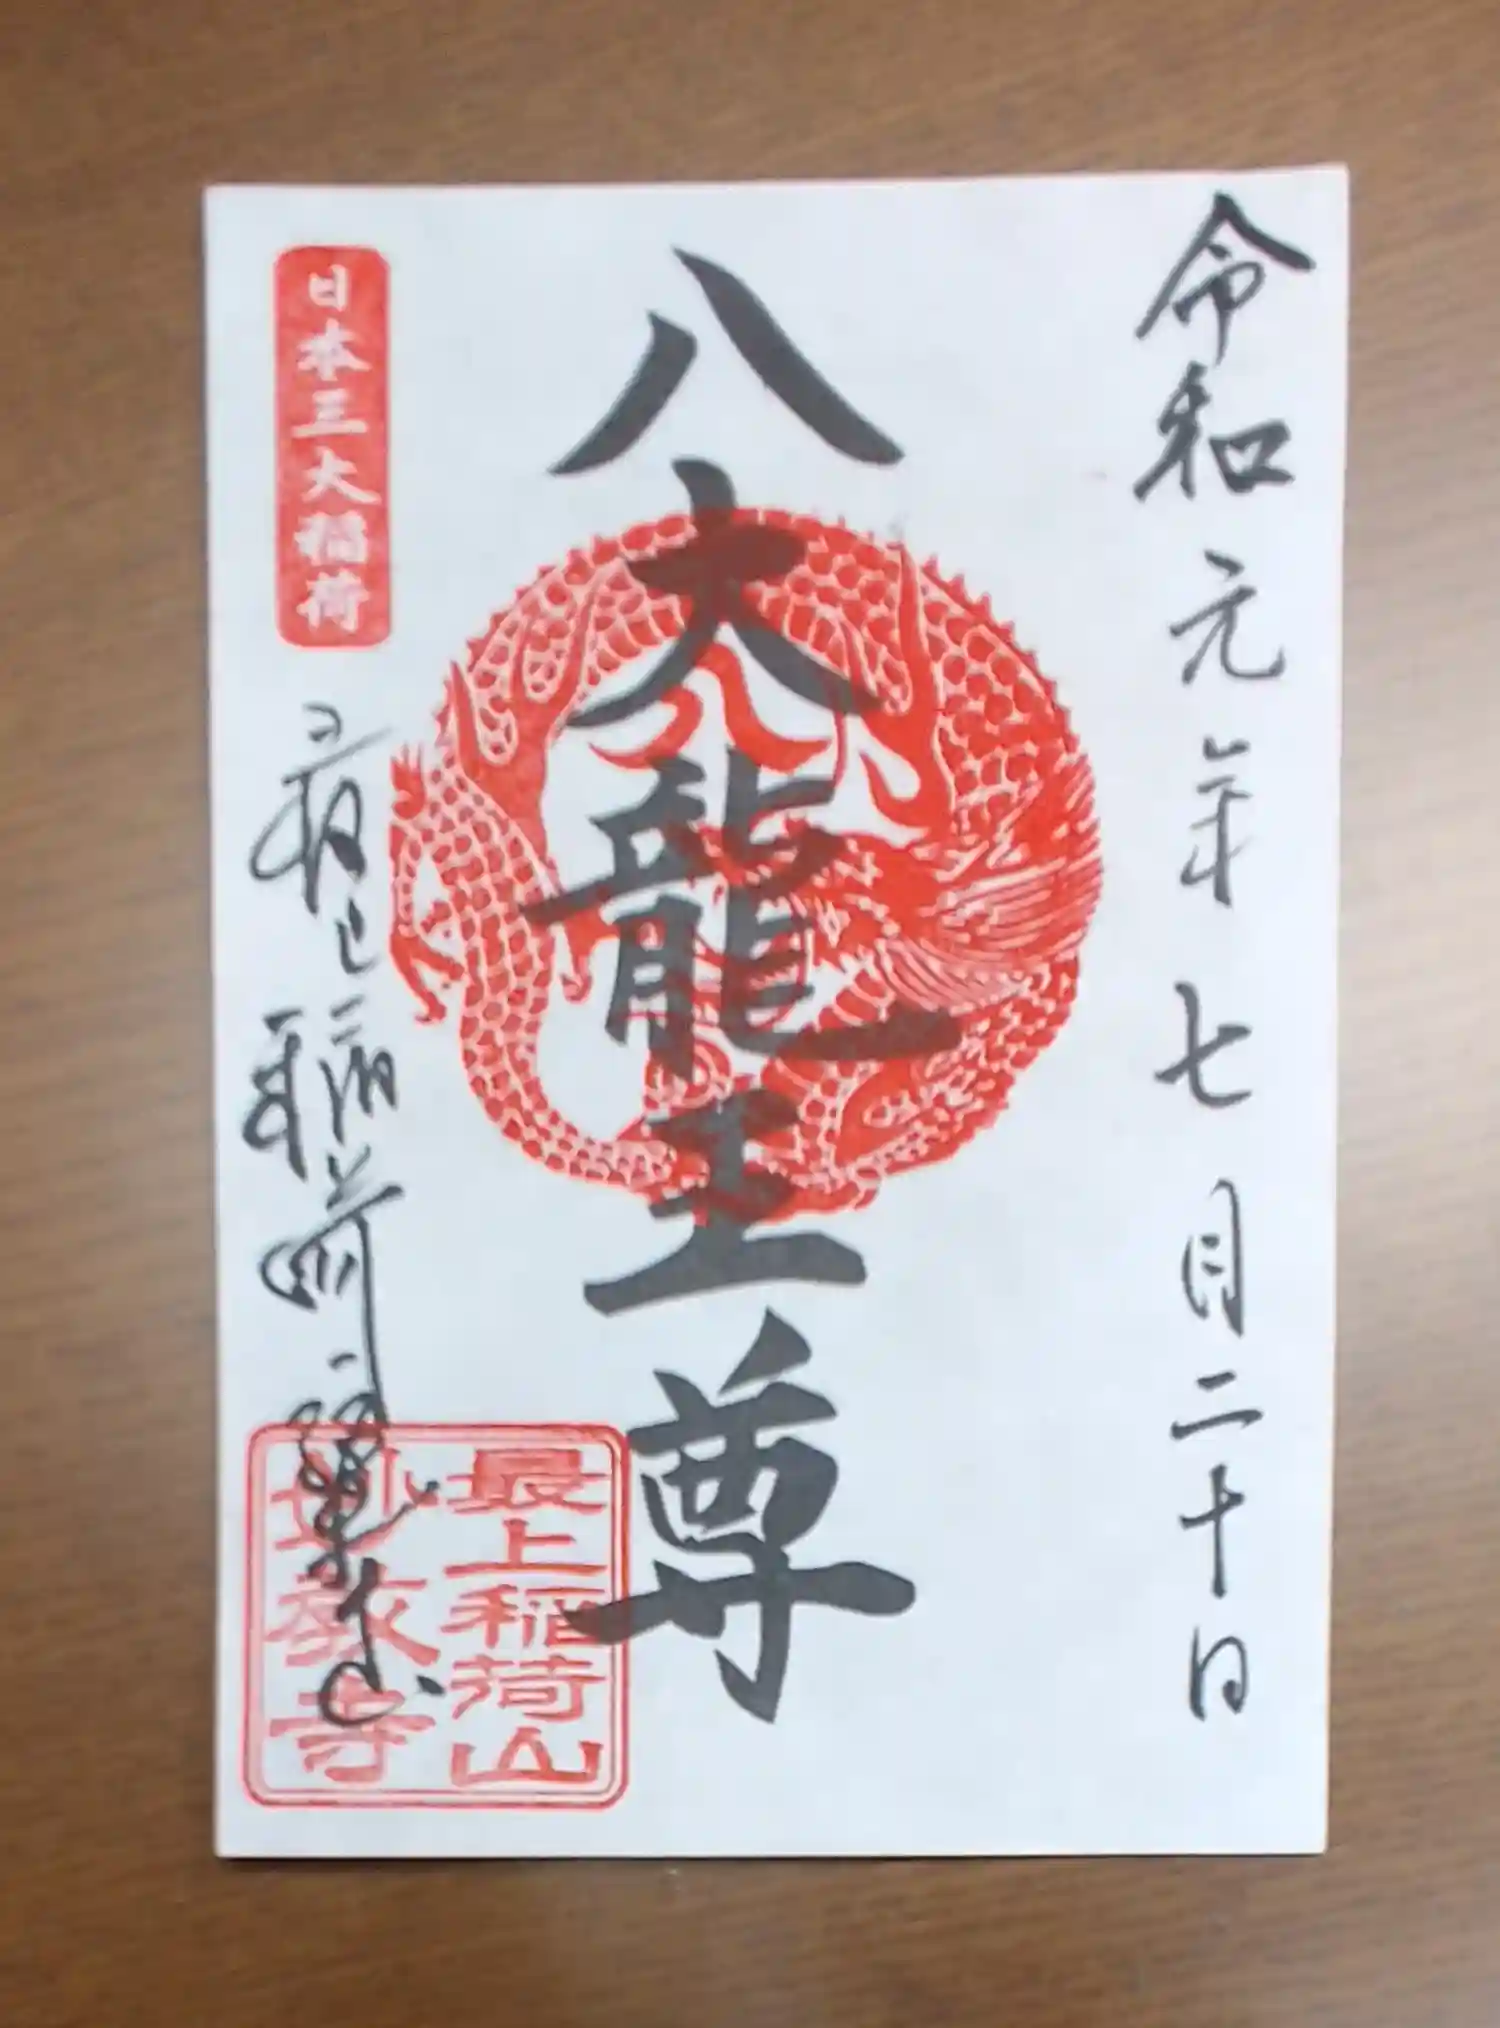 令和元年七月二十日
八大龍王尊
日本三大稲荷
最上稲荷山
妙教寺